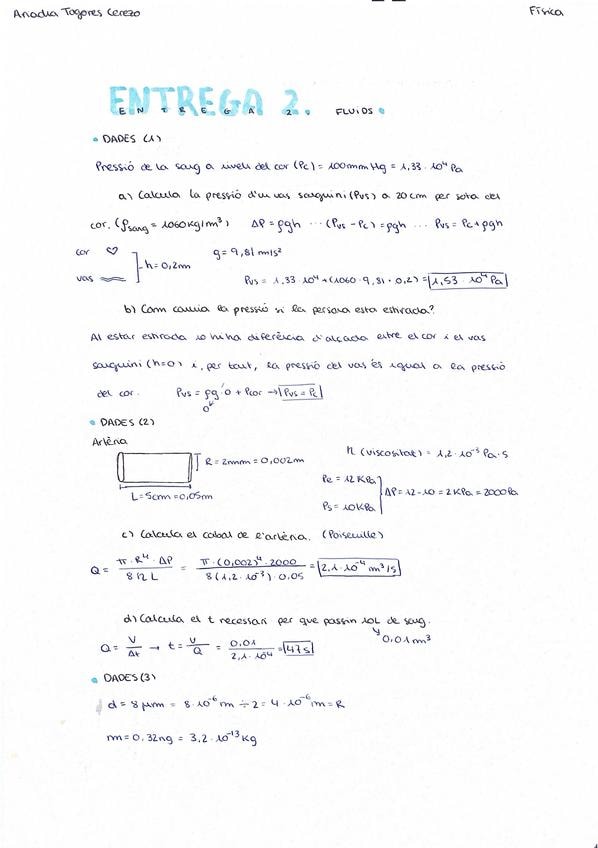 Física
ENTREGA 2.
ENTREGA 2. FLUIDS
• DADES (1)
Pressió de la sang a nivell del cor (Pc) = 100mmHg = 1,33 · 10⁴ Pa
a) Calcula la pressió d'un vas sanguini (Pvs) a 20cm per sota del
cor. (ρsang = 1060kg/m³) ΔP = ρgh ··· (Pvs - Pc) = ρgh ··· Pvs = Pc + ρgh
cor ♡ h = 0,2m g = 9,81 m/s²
vas
Pvs = 1,33 · 10⁴ + (1060 · 9,81 · 0,2) = 1,53 · 10⁴ Pa
b) Com canvia la pressió si la persona esta estirada?
Al estar estirada no hi ha diferència d'alçada entre el cor i el vas
sanguini (h=0) i, per tant, la pressió del vas és igual a la pressió
del cor. Pvs = ρg·0 + Pcor → Pvs = Pc
0
• DADES (2)
Artèria
R = 2mm = 0,002m
L = 5cm = 0,05m
η (viscositat) = 1,2 · 10⁻³ Pa · s
Pe = 12 KPa
Ps = 10 KPa
ΔP = 12 - 10 = 2 KPa = 2000 Pa
c) Calcula el cabal de l'artèria. (Poiseuille)
Q = π · R⁴ · ΔP / 8 η L = π · (0,002)⁴ · 2000 / 8 (1,2 · 10⁻³) · 0,05 = 2,1 · 10⁻⁴ m³/s
d) Calcula el t necessari per que passin 10L de sang.
0,01 m³
Q = V / Δt → t = V / Q = 0,01 / 2,1 · 10⁻⁴ = 47s
• DADES (3)
d = 8 μm = 8 · 10⁻⁶ m ÷ 2 = 4 · 10⁻⁶ m = R
m = 0,32ng = 3,2 · 10⁻¹³ Kg